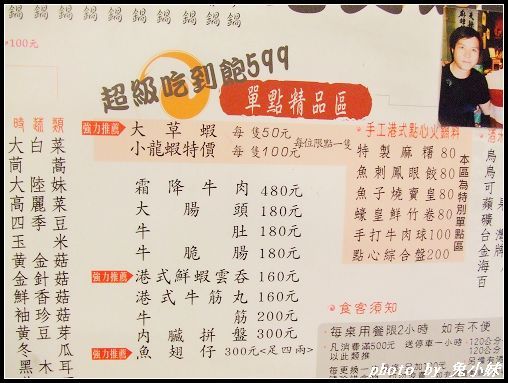 鍋 鍋 鍋 鍋 鍋 鍋 鍋 鍋 鍋
*100元
超級吃到飽599
單點精品區
強力推薦 大草蝦 每隻50元
小龍蝦特價 每隻100元
每位限點一隻
霜降牛肉 480元
大腸頭 180元
牛肚 180元
牛脆腸 180元
強力推薦 港式鮮蝦雲吞 160元
港式牛筋丸 160元
牛筋 200元
內臟拼盤 300元
強力推薦 魚翅仔 300元<足四兩>
*手工港式點心火鍋料
特製麻糬 80
魚刺鳳眼餃 80
魚子燒賣皇 80
蠔皇鮮竹卷 80
手打牛肉球 100
點心綜合盤 200
本區為特別單點區
時蔬類
菜
蒿
妹
菜
豆
米
菇
菇
菇
芽
瓜
耳
白
陸
麗
季
金針
香
珍
豆
大
茼
大
高
四
玉
黃
金
鮮
袖
黃
冬
黑
烏
烏
可
蘋
礦
台
金
海
百
*食客須知
每桌用餐限2小時 如有不便
凡消費滿500元 送停車一小時
以此類推
120公分
120公分
photo by 兔小妹